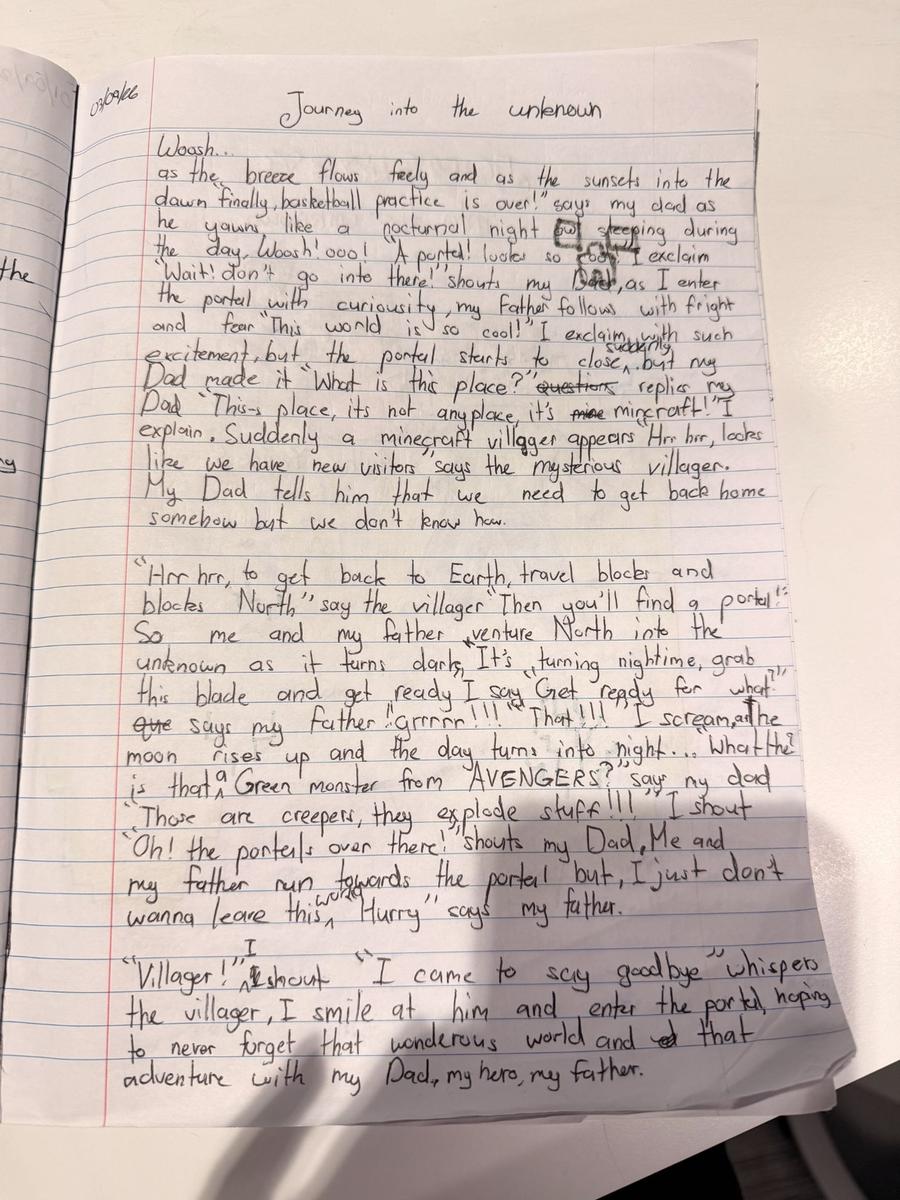 03/09/26
Journey into the unknown
Woosh...
as the breeze flows feely and as the sunsets into the
dawn "finally, basketball practice is over!" says my dad as
he yawns like a nocturnal night owl sleeping during
the day, Woosh! ooo! "A portal! looks so cool! I exclaim
"Wait! don't go into there!" shouts my Dad, as I enter
the portal with curiousity, my Father follows with fright
and fear "This world is so cool!" I exclaim, with such
excitement, but the portal starts to close suddenly, but my
Dad made it "What is this place?" replies my
Dad "This place, its not anyplace, it's minecraft!" I
explain. Suddenly a minecraft villager appears "Hrr hrr, looks
like we have new visitors" says the mysterious villager.
My Dad tells him that we need to get back home
somehow but we don't know how.
"Hrr hrr, to get back to Earth, travel blocks and
blocks North" say the villager "Then you'll find a portal!"
So me and my father venture North into the
unknown as it turns dark, "It's turning nightime, grab
this blade and get ready I say "Get ready for what?"
says my Father "grrrrr!!!" "That!!!" I scream, as the
moon rises up and the day turns into night... "What the?
is that a Green monster from AVENGERS?" says my dad
"Those are creepers, they explode stuff!!!" I shout
"Oh! the portals over there!" shouts my Dad, Me and
my father run towards the portal but, I just don't
wanna leave this world "Hurry" says my father.
"Villager!" I shout "I came to say goodbye" whispers
the villager, I smile at him and enter the portal, hoping
to never forget that wonderous world and that
adventure with my Dad, my hero, my father.
the